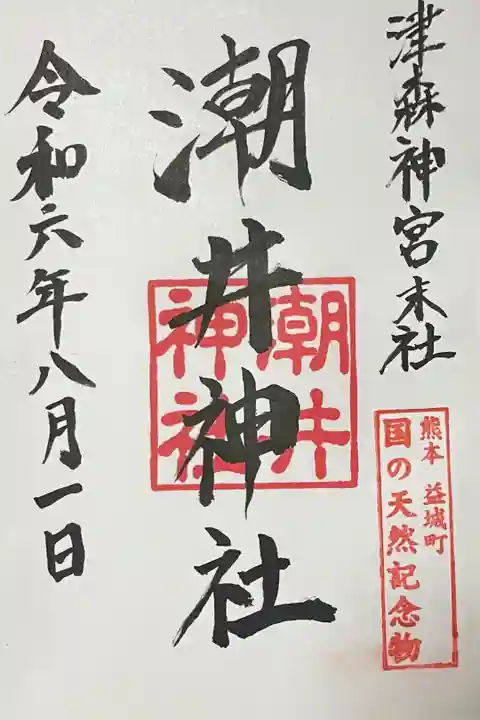 津森神宮末社
熊本 益城町
国の天然記念物
潮井神社
潮井
神社
令和六年八月一日